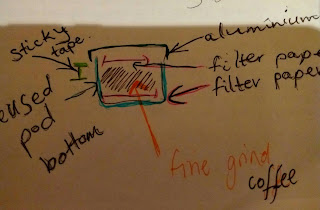 sticky
tape
aluminium
filter pape
filter paper
used
pod
bottom
fine grind
coffee